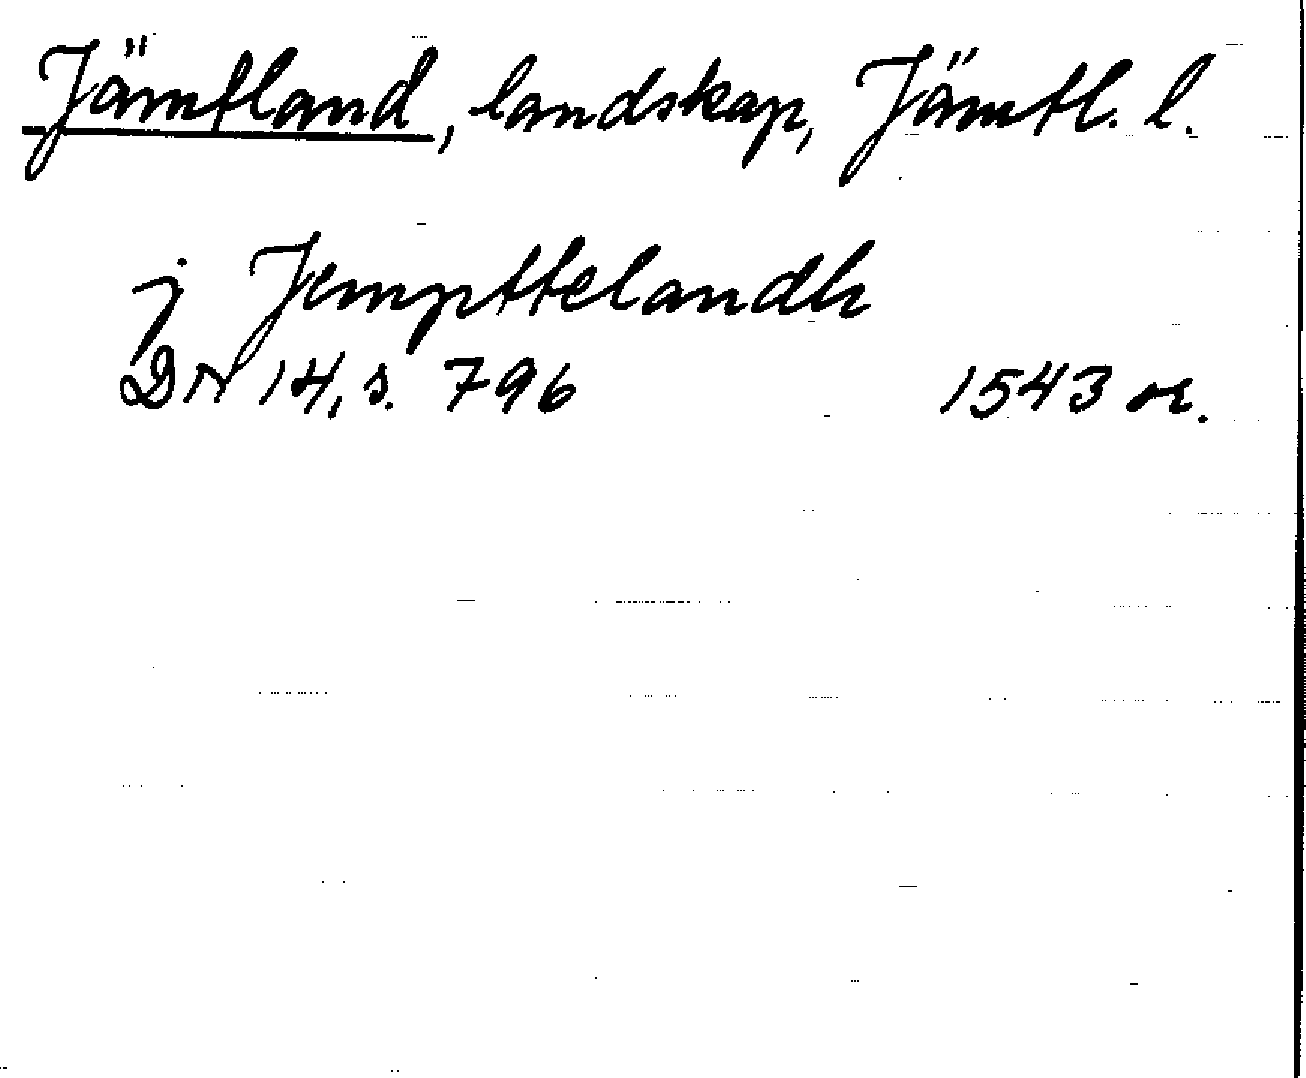 Jämtland, landskap, Jämtl. l.
j Jempttelandh
DN 14, s. 796 1543 or.